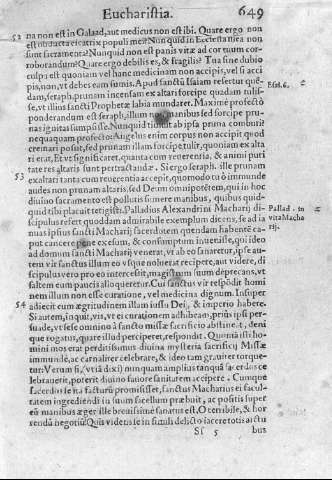 Eucharistia. 649
52 na non est in Galaad, aut medicus non est ibi. Quare ergo non
est obducta cicatrix populi mei? Nunquid in Ecclesia mea non
sunt sacramenta? Nunquid non est panis vitæ ad cor tuum cor-
roborandum? Quare ergo debilis es, & fragilis? Tua sine dubio
culpa est quoniam vel hanc medicinam non accipis, vel si acci
pis, non, vt debes eam sumis. Apud sanctũ Isaiam refertur quẽ-
Esai. 6.
dam, seraph. prunam incensam ex altari forcipe quadam tulis-
se, vt illius sancti Prophetæ labia mundaret. Maxime profectò
ponderandum est seraph. illum non manibus sed forcipe pru-
nas ignitas sumpsisse. Nunquid timuit ab ipsa pruna comburi?
nequaquam profectò: Angelus enim corpus non accipit quod
cremari possit, sed prunam illam forcipe tulit, quoniam ex alta
ri erat, Et vt significaret, quanta cum reverentia, & animi puri
tate res altaris sunt pertractandæ. Si ergo seraph. ille prunam
53 exaltari tanta cum reverentia accepit, quomodo tu ò immunde
audes non prunam altaris, sed Deum omnipotẽtem, qui in hoc
diuino sacramento est pollutis sumere manibus, quibus quid-
quid tibi placuit tetigisti. Palladius Alexandrini Macharij di-
Pallad. in
scipulus refert quoddam admirabile exemplum dicens, se ad ia
vita Macha
nuas ipsius sancti Macharij sacerdotem quendam habentẽ ca-
rij.
put cancere pene exesum, & consumptum inuenisse, qui ideo
ad domum sancti Macharij venerat, vt ab eo sanaretur, ipse au-
tem vir sanctus illum eo vsque noluerat recipere, aut videre, di
scipulus vero pro eo intercessit, magistrum suum deprecans, vt
saltem eum paucis alloqueretur. Cui sanctus vir respõdit homi
nem illum non esse curatione, vel medicina dignum. Insuper
54 adiecit eum ægritudinem illam iussu Dei, & imperio habere.
Si autem, inquit, vis, vt ei curationem adhibeam, priùs ipsi per-
suade, vt sese omnino à sancto missæ sacrificio abstineat, deni
que rogatus, quare illud perciperet, respondit. Quoniã isti ho-
mini mos erat perditissimus diuina mysteria sacrificij Missæ
immundè, ac carnaliter celebrare, & ideo tam grauiter torque-
tur: Verum si, (vti à dixi) nunquam amplius tanquã sacerdos ce
lebrauerit, poterit diuino fauore sanitatem accipere. Cumque
sacerdos se ita facturũ promisisset, sanctus Macharius ei facul-
tatem ingrediendi in suum sacellum præbuit, ac positis super
eũ manibus æger ille breuissimè sanatus est, O terribile, & hor
rendũ negotiũ! Quis videns se in simili delicto iacere totis artu
Sf 5 bus